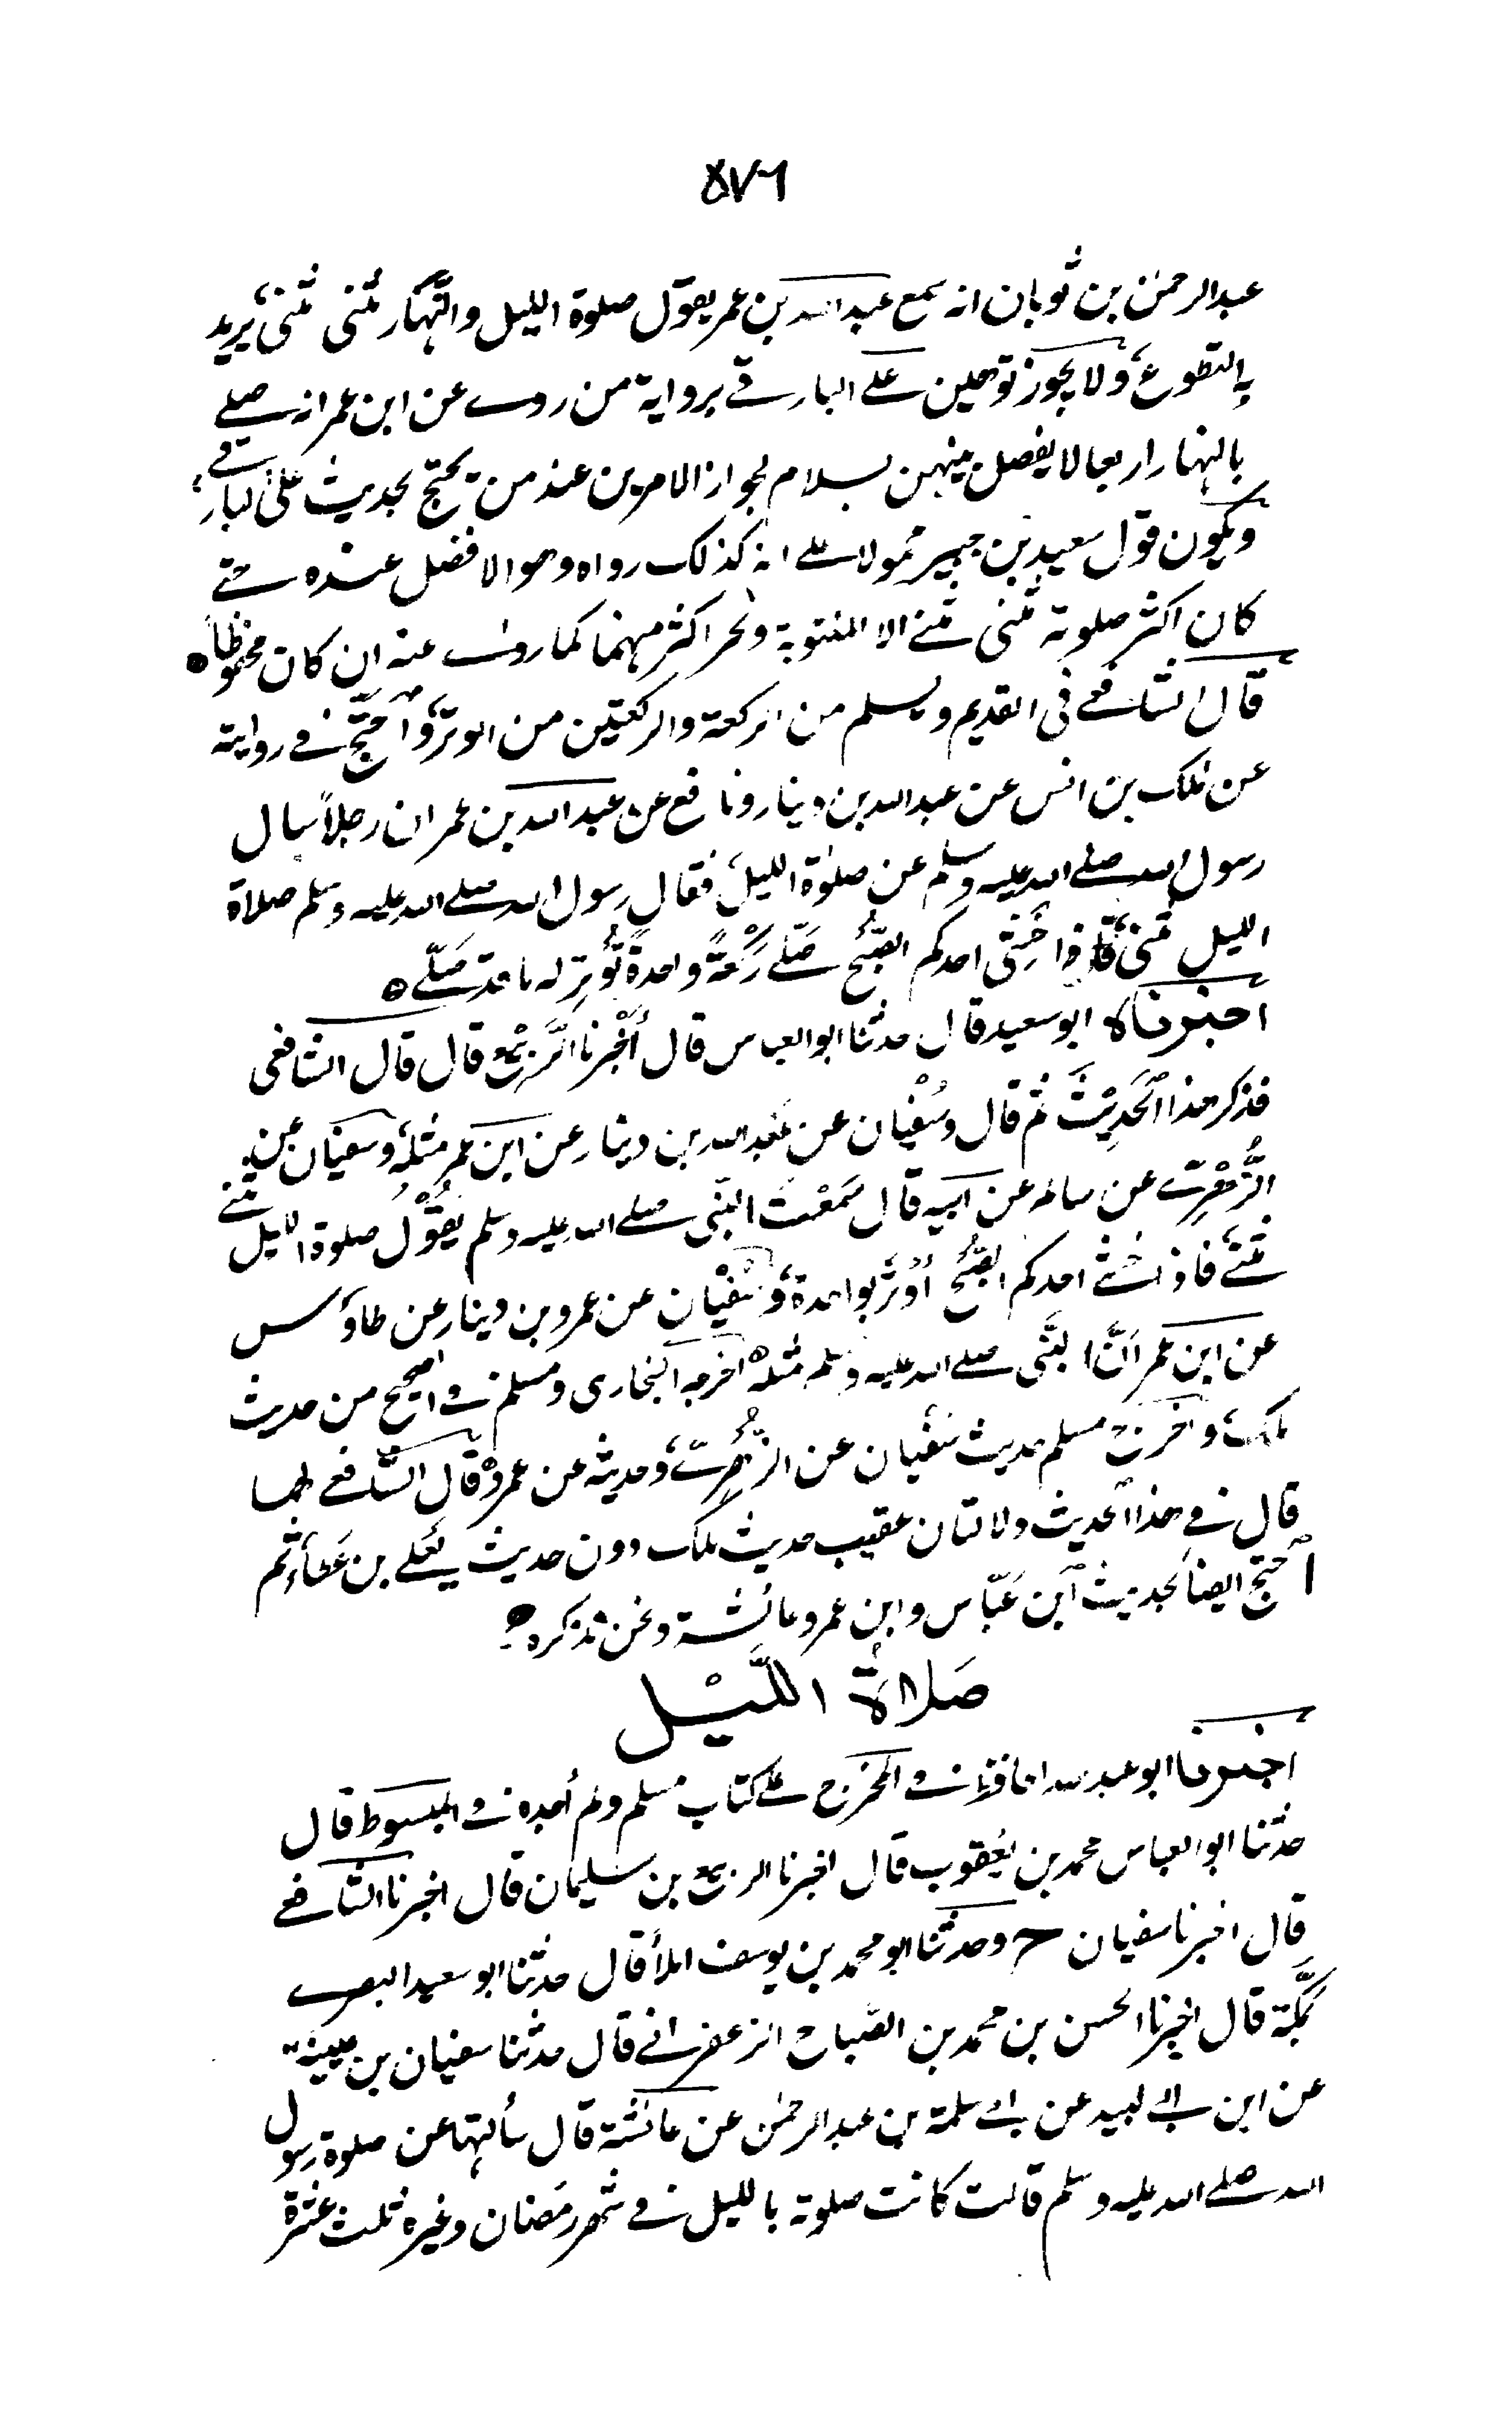 ٥٧٦
عبدالرحمن بن ثوبان انه سمع عبدالله بن عمر يقول صلوة الليل والنهار مثنى مثنى يريد
به التطوع ولا يجوز توهين على البارقي برواية من روى عن ابن عمر انه صلى
بالنهار اربعا لا يفصل بينهن بسلام لجواز الامرين عند من يحتج بحديث علي البارقي
ويكون قول سعيد بن جبير محمولا على انه كذلك رواه وهو الافضل عنده حتى
كان اكثر صلوته مثنى مثنى الا المكتوبة كما روى عنه ان كان محفوظاً
قال الشافعي في القديم ويسلم من الركعة والركعتين من الوتر واحتج في رواية
عن ملك بن انس عن عبدالله بن دينار ونافع عن عبدالله بن عمر ان رجلاً سال
رسول الله صلى الله عليه وسلم عن صلوة الليل فقال رسول الله صلى الله عليه وسلم صلاة
الليل مثنى فاذا خشى احدكم الصبح صلى ركعة واحدة توتر له ما قد صلى
اخبرناه ابو سعيد قال حدثنا ابو العباس قال أخبرنا الربيع قال قال الشافعي
فذكر هذا الحديث ثم قال وسفيان عن عبدالله بن دينار عن ابن عمر مثله وسفيان عن
الزهري عن سالم عن ابيه قال سمعت النبي صلى الله عليه وسلم يقول صلوة الليل مثنى
مثنى فاذا خشى احدكم الصبح أوتر بواحدة وسفيان عن عمرو بن دينار عن طاوس
عن ابن عمر أن النبي صلى الله عليه وسلم مثله اخرجه البخاري ومسلم في الصحيح من حديث
ملك واخرج مسلم حديث سفيان عن الزهري وحديثه عن عمرو قال الشافعي لهما
قال في هذا الحديث ولاتيان عقيب حديث ملك دون حديث يعلى بن عطاء ثم
احتج ايضا بحديث ابن عباس وابن عمر وعائشة ونحن نذكره
صَلاة اللَّيْل
اخبرنا ابو عبدالله الحافظ في المخرج على كتاب مسلم ولم أجده في المبسوط قال
حدثنا ابو العباس محمد بن يعقوب قال اخبرنا الربيع بن سليمان قال اخبرنا الشافعي
قال اخبرنا سفيان ح وحدثنا ابو محمد بن يوسف املأ قال حدثنا ابو سعيد البصري
بمكة قال اخبرنا الحسن بن محمد بن الصباح الزعفراني قال حدثنا سفيان بن عيينة
عن ابن ابي لبيد عن ابي سلمة بن عبدالرحمن عن عائشة قال سألتها عن صلوة رسول
الله صلى الله عليه وسلم قالت كانت صلوته بالليل في شهر رمضان وغيره ثلث عشرة